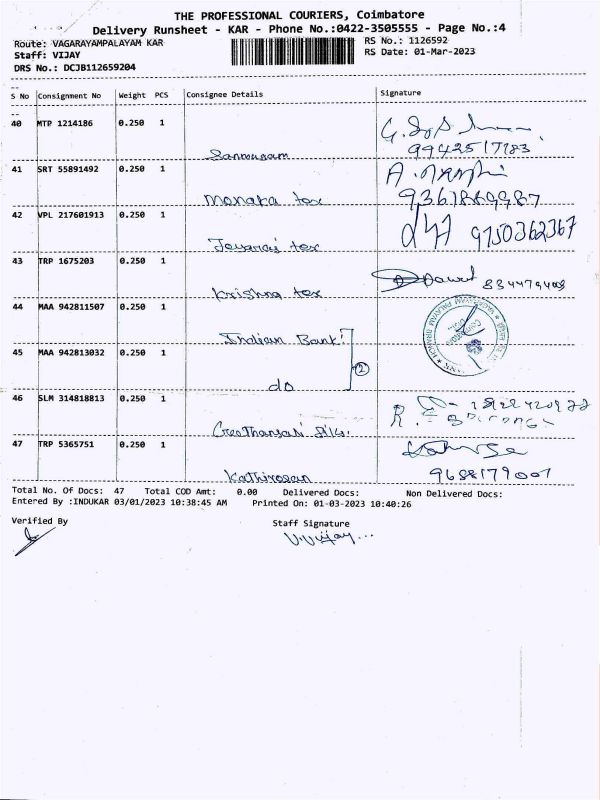 THE PROFESSIONAL COURIERS, Coimbatore
Delivery Runsheet - KAR - Phone No.:0422-3505555 - Page No.:4
Route: VAGARAYAMPALAYAM KAR
RS No.: 1126592
Staff: VIJAY
RS Date: 01-Mar-2023
DRS No.: DCJB112659204
S No Consignment No Weight PCS Consignee Details Signature
40 MTP 1214186 0.250 1
9942517783
41 SRT 55891492 0.250 1
Monaka tex
42 VPL 217601913 0.250 1
9750362367
tex
43 TRP 1675203 0.250 1
Krishna tex
44 MAA 942811507 0.250 1
Indian Bank
45 MAA 942813032 0.250 1
2
do
46 SLM 314818813 0.250 1
47 TRP 5365751 0.250 1
Kathiresan 9688179007
Total No. Of Docs: 47 Total COD Amt: 0.00 Delivered Docs: Non Delivered Docs:
Entered By :INDUKAR 03/01/2023 10:38:45 AM Printed On: 01-03-2023 10:40:26
Verified By Staff Signature
V.Vijay...